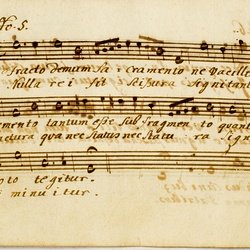 No 5.
fracto demum Sacramento ne Vacille
Nulla rei fit scissura Signi tant
mento tantum esse sub fragmento quan
ctura qua nec Status nec Statu ra Sign
to tegitur.
minuitur.